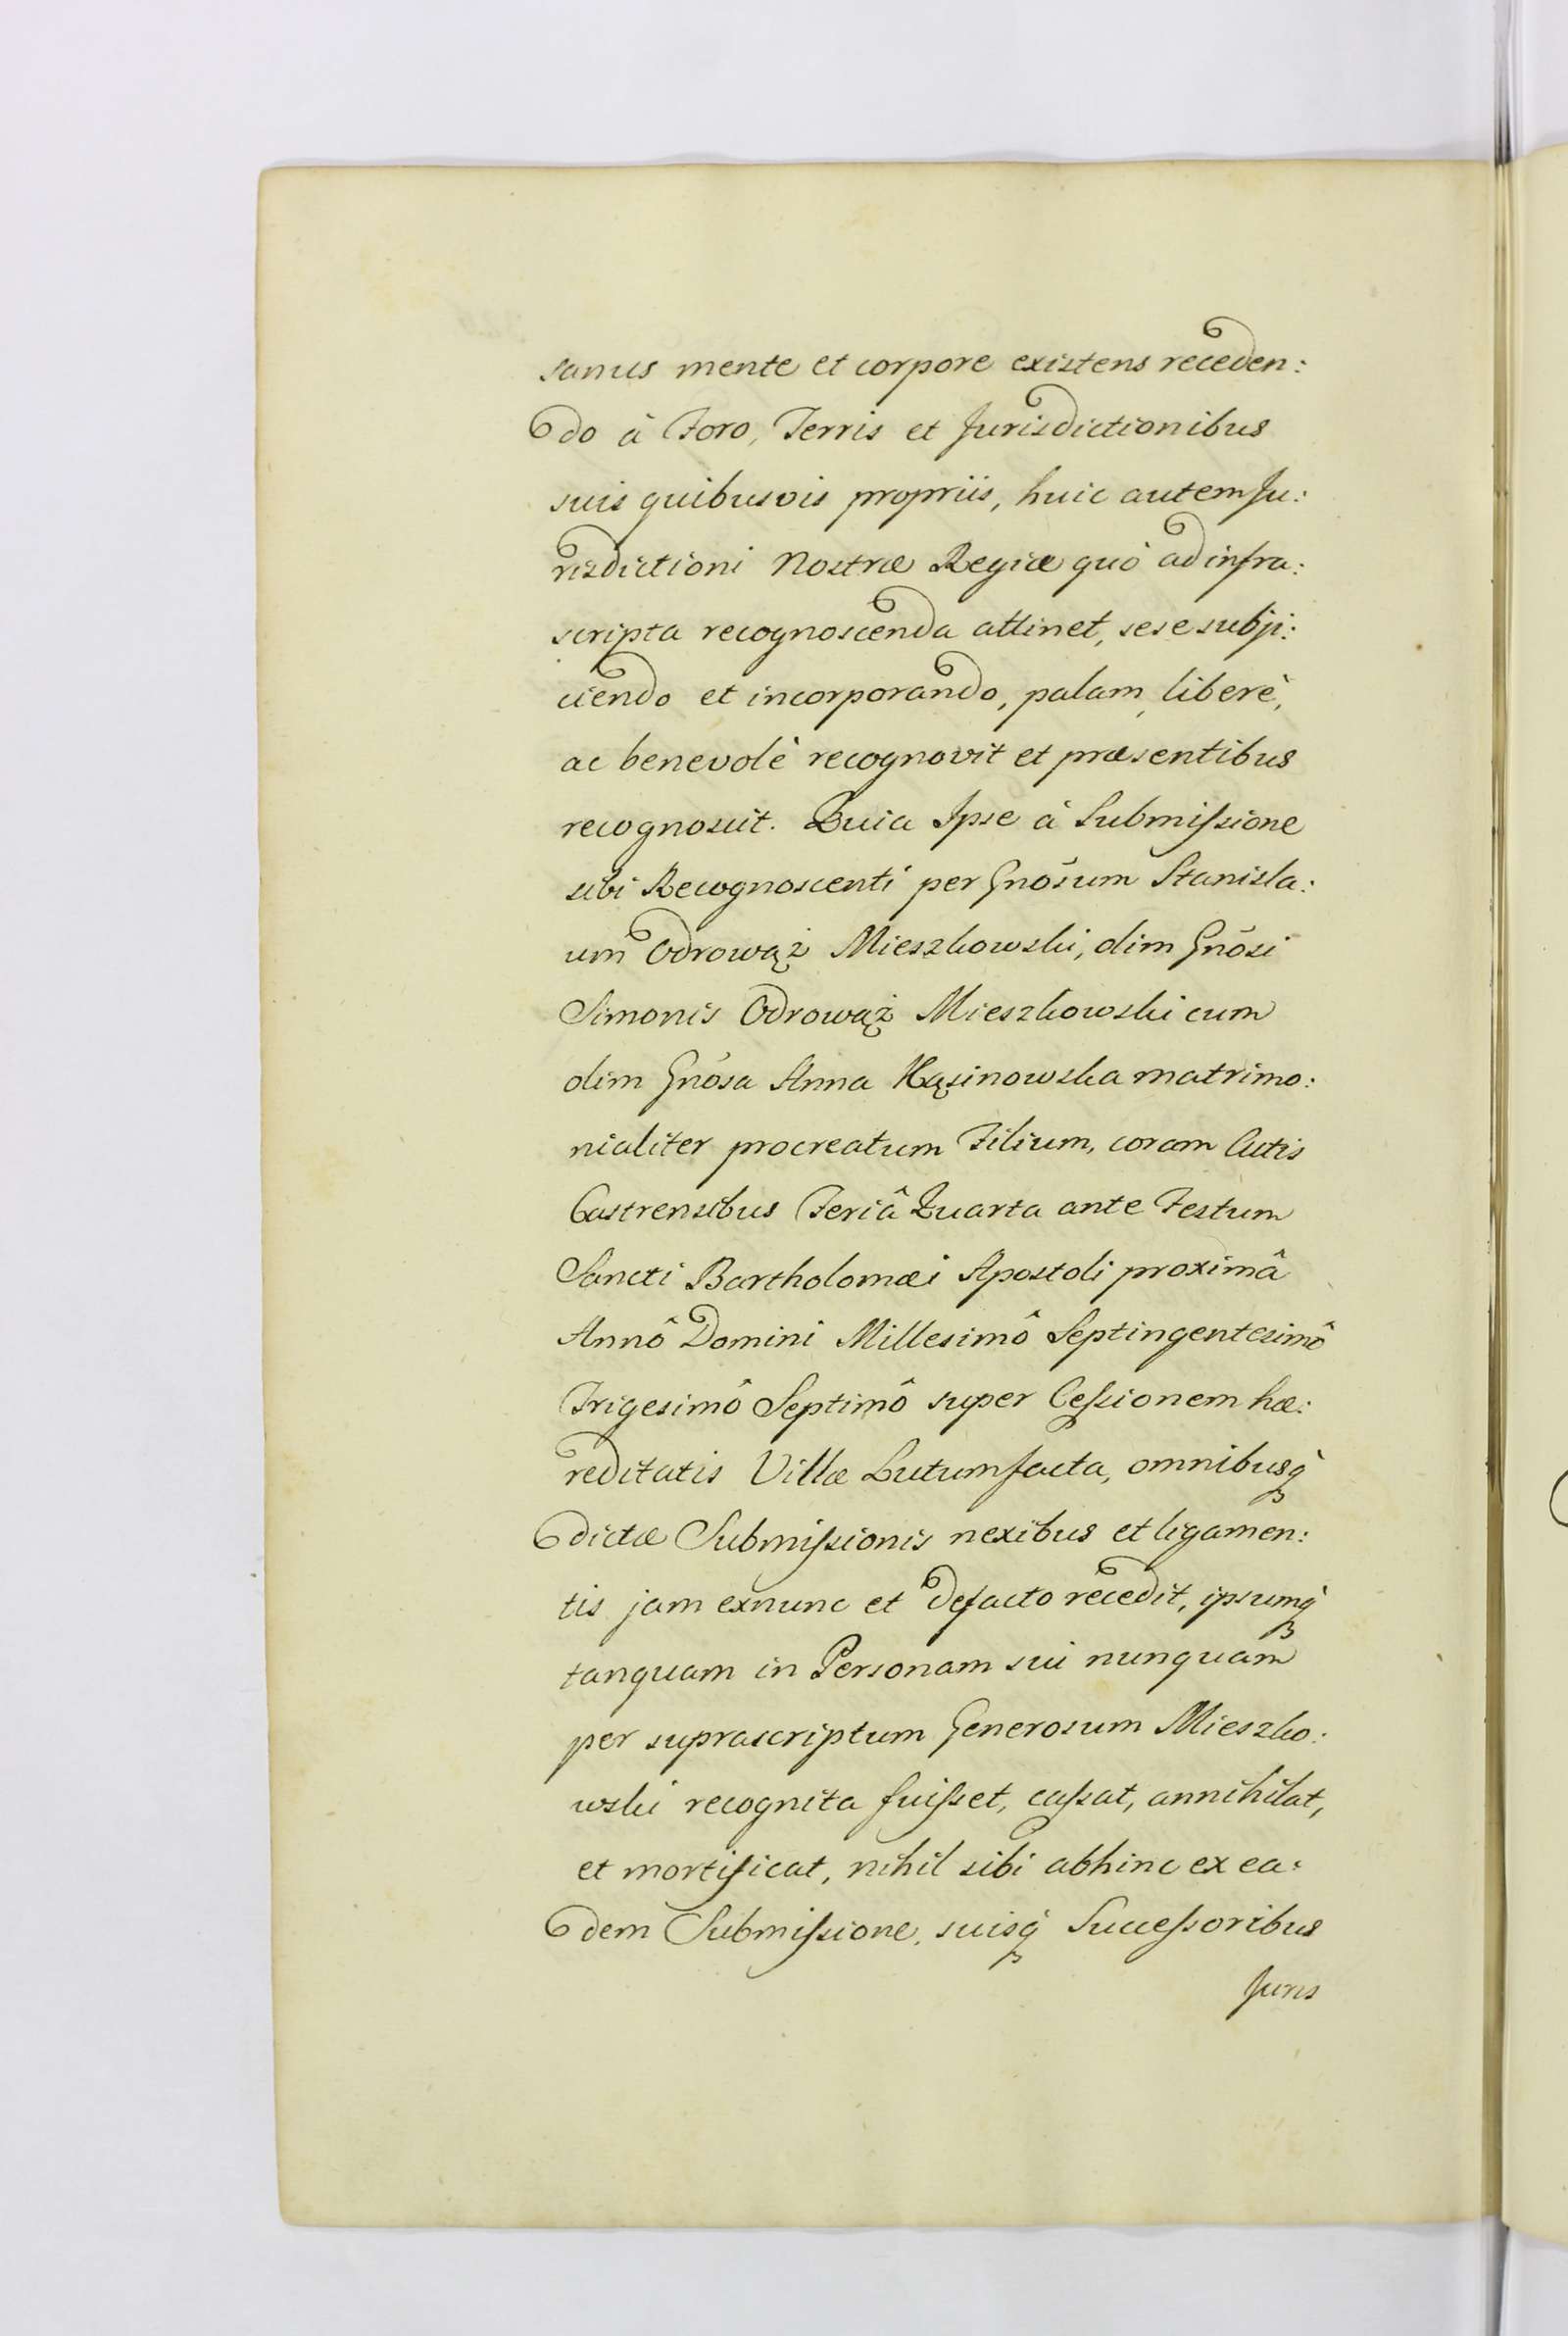 sanus mente et corpore existens receden:
do à Foro, Terris et Jurisdictionibus
suis quibusvis propriis, huic autem Ju:
risdictioni Nostræ Regiæ quò ad infra:
scripta recognoscenda attinet, sese subji:
ciendo et incorporando, palam, liberè,
ac benevolè recognovit et præsentibus
recognoscit. Quia Ipse à Submissione
sibi Recognoscenti per Gnõsum Stanisla:
um Odrowąż Mieszkowski, olim Gnõsi
Simonis Odrowąż Mieszkowski cum
olim Gnõsa Anna Kąsinowska matrimo:
nialiter procreatum Filium, coram Actis
Castrensibus Feriâ Quarta ante Festum
Sancti Bartholomæi Apostoli proximâ
Annô Domini Millesimô Septingentesimô
Trigesimô Septimô super Cessionem hæ:
reditatis Villæ Lutum facta, omnibusq̀
dictæ Submissionis nexibus et ligamen:
tis jam exnunc et defacto recedit, ipsumq̀
tanquam in Personam sui nunquam
per suprascriptum Generosum Mieszko:
wski recognita fuisset, cassat, annihilat,
et mortificat, nihil sibi abhinc ex ea:
dem Submissione, suisq̀ Successoribus
Juris